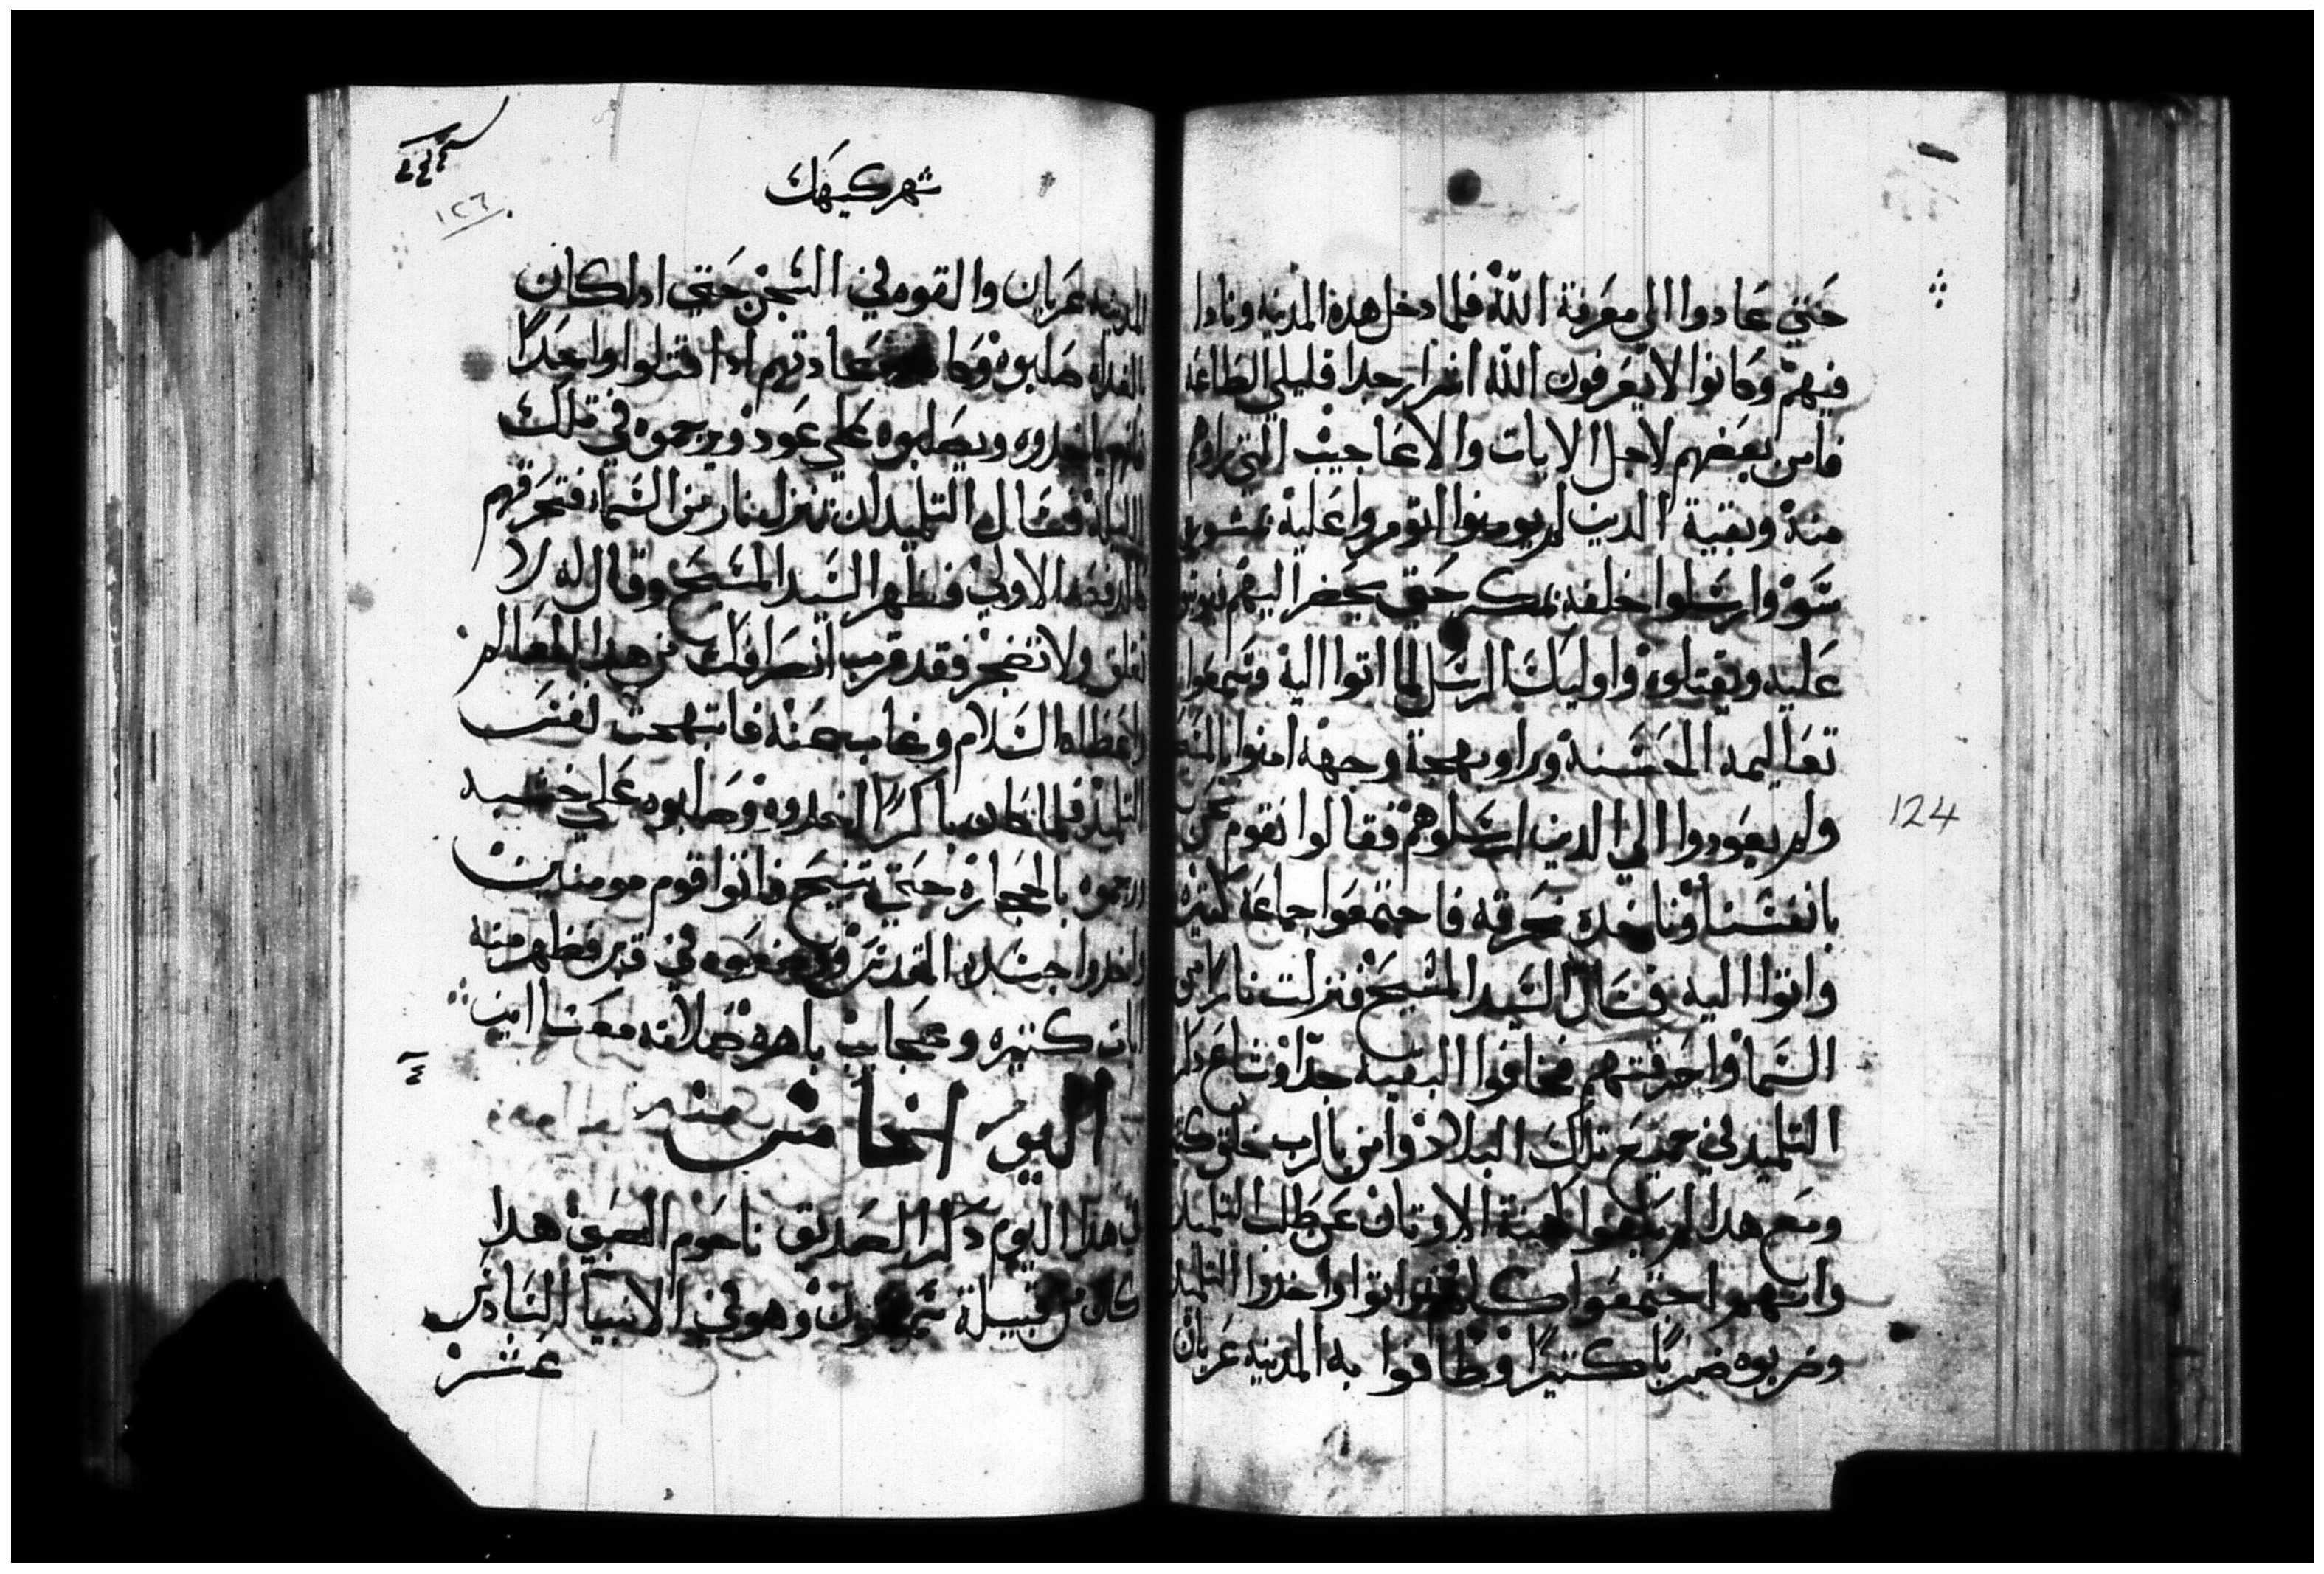 حتي عادوا الي معرفة الله فلما دخل هده المدينه ونادا
فيهم وكانوا لا يعرفون الله اشرار جدا قليلي الطاعه
فامن بعضهم لاجل الايات والاعاجيب التي راوهم
منه وبقية الدين لم يومنوا اتومروا عليه بمشوره
سو وارسلوا خلفه بمكر حتي يحضر اليهم
عليه ويقتلوه واوليك الرسل لما اتوا اليه وسمعوا
تعاليمه الحسنه وراو بهجة وجهه امنوا بالمسيح
ولم يعودوا الي الدين ارسلوهم فقالوا نقوم نحن
بانفسنا وناخده نحرقه فاجتمعوا جماعه كتيره
واتوا اليه فسال السيد المسيح فنزلت نار من
السما واحرقتهم فخافوا البقيه جدا وشاع دكر
التلميد في جميع تلك البلاد وامن بالرب خلق
ومع هدا لم كهنة الاوتان عن طلب التلميد
وانتهوا اجتمعوا كلهم واتوا واخدوا التلميد
وضربوه ضربا كتيرا وطافوا به المدينه عريان
124
شهر كيهك
١٢٦
المدينه عريان والقوه في السجن حتي ادا كان
الغداه صلبوه وكانت عادتهم ادا قتلوا واحدا
ياخدوه ويصلبوه علي عود ويرجموه في تلك
الليلة فسال التلميد ان تنزل نار من السما فتحرقهم
كالدفعه الاولي فظهر السيد المسيح وقال له لا
تقلق ولا تضجر فقد قرب انصرافك من هدا العالم
واعطاه السلام وغاب عنه فابتهجت نفس
التلميد فلما كان باكرا اخدوه وصلبوه علي خشبه
ورجموه بالحجاره حتي تنيح فاتوا قوم مومنين
واخدوا جسده المقدس ووضعوه في قبر فظهر منه
ايات كتيره وعجايب باهره صلاته معنا امين
اليوم الخامس منه
في هدا اليوم دكر الصديق ناحوم النبي هدا
كان من قبيلة شمعون وهو في الانبيا السادس
عشر